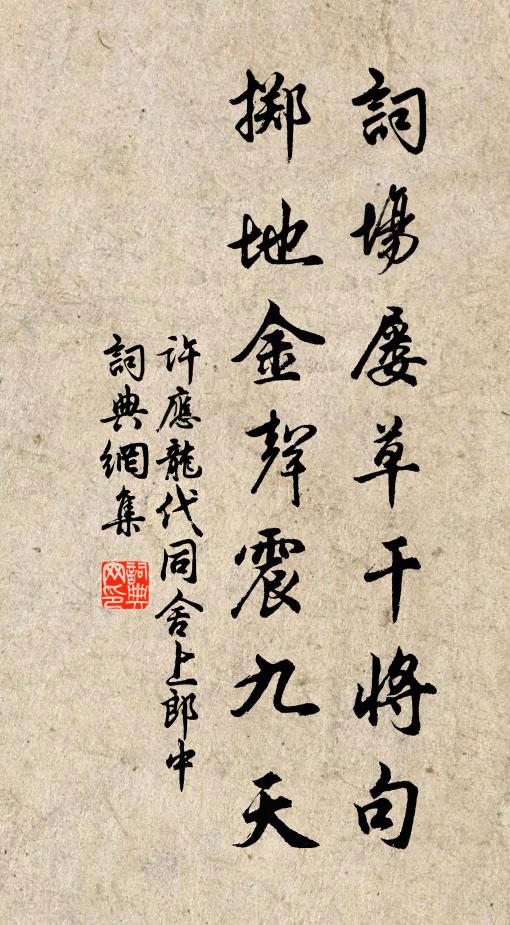 詞場屢草干將句
擲地金聲震九天
許應龍代同舍上郎中
詞典網集
詞典网印